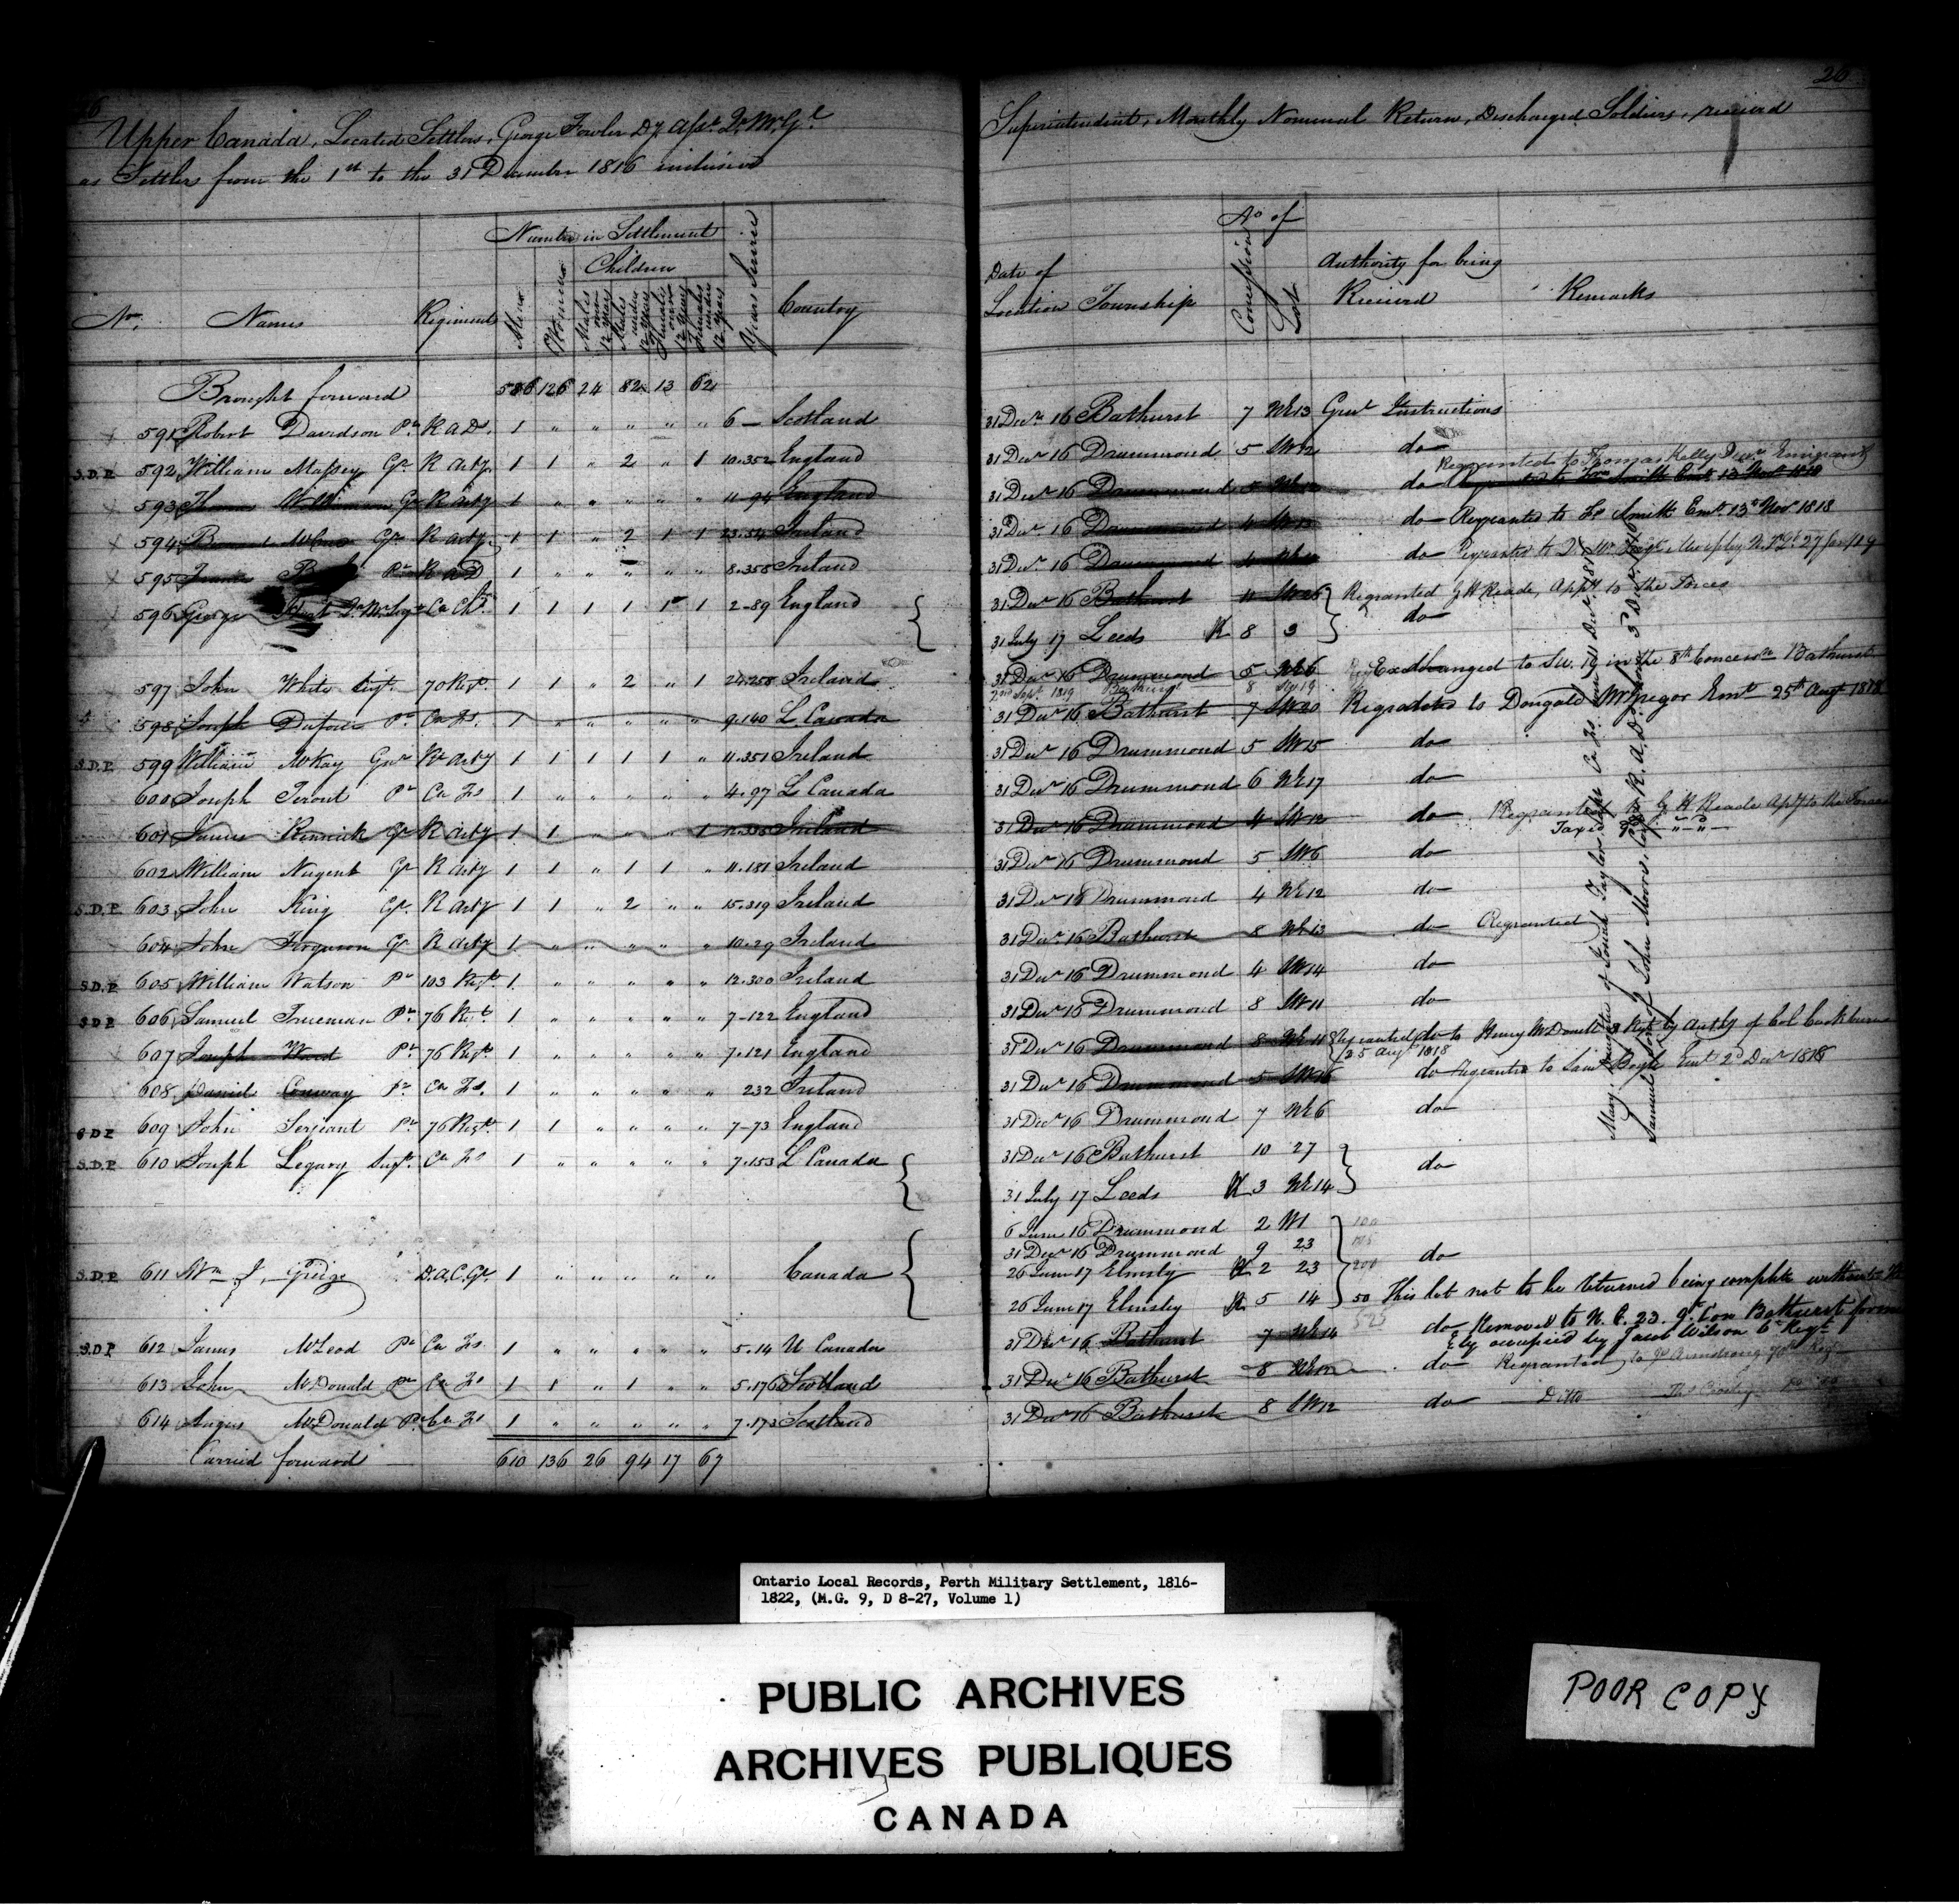 26
Upper Canada, Located Settlers, George Fowler Dy Asst Qr Mr Gl
as Settlers from the 1st to the 31 December 1816 inclusive
Number in Settlement
Children
No. Names Regiment Men Women Males over 12 years Males under 12 years Females over 12 years Females under 12 years Years Service Country
Brought forward 586 126 24 82 13 62
591 Robert Davidson Pr R A D. 1 " " " " " 6 — Scotland
S.D.P. 592 William Massey Gr R Arty 1 1 " 2 " 1 10.352 England
593 Gr R Arty 1 " " " " " 11-94 England
594 Gr R Arty 1 1 " 2 1 1 23.54 Ireland
595 Pr R A D 1 " " " " " 8.358 Ireland
596 George Qr Mr Sergt Ca Ch. 1 1 1 1 1 1 2-89 England
597 John White Sergt. 70 Regt. 1 1 " 2 " 1 24.258 Ireland
598 Joseph Dufour Pr Ca Fs. 1 " " " " " 9.140 L Canada
S.D.P. 599 William McKay Gnr Rl Arty 1 1 1 1 1 " 11.351 Ireland
600 Joseph Perout Pr Ca Fs 1 " " " " " 4.97 L Canada
601 James Kennick Gr R Arty 1 1 " " " 1 Ireland
602 William Nugent Gr R Arty 1 1 " 1 1 " 11.181 Ireland
S.D.P. 603 John King Gr. R Arty 1 1 " 2 " " 15.319 Ireland
604 John Ferguson Gr R Arty 1 " " " " " 10.29 Ireland
S.D.P. 605 William Watson Pr 103 Regt 1 " " " " " 12.300 Ireland
S.D.P. 606 Samuel Trueman Pr 76 Regt. 1 " " " " " 7-122 England
607 Joseph Ward Pr 76 Regt. 1 " " " " " 7.121 England
608 Daniel Conway Pr Ca Fs. 1 " " " " " 232 Ireland
S.D.P. 609 John Serjeant Pr 76 Regt. 1 1 " " " " 7-73 England
S.D.P. 610 Joseph Legary Sergt. Ca Fs 1 " " " " " 7.153 L Canada
S.D.P. 611 Wm J. D.A.C.Gl. 1 " " " " " Canada
S.D.P. 612 James McLeod Pr Ca Fs. 1 " " " " " 5.14 U Canada
613 John McDonald Pr Ca Fs 1 1 " 1 " " 5.176 Scotland
614 Angus McDonald Pr Ca Fs 1 " " " " " 7.173 Scotland
Carried forward — 610 136 26 94 17 67
26
Superintendent, Monthly Nominal Return, Discharged Soldiers, received
No of
Date of Location Township Concession Lot Authority for being Received Remarks
31 Decr 16 Bathurst 7 NE 13 Genl Instructions
31 Decr 16 Drummond 5 SW 12 do
Regranted to Thomas Kelly Emigrant
31 Decr 16 Drummond do Regranted to Smith Emt. 13 Novr 1818
31 Decr. 16 Drummond 4 do Regranted to Smith Emt 13th Novr 1818
31 Decr. 16 Drummond 4 do Regranted to Qr Mr Sergt Murphy 27 Jany 19
31 Decr 16 Bathurst Regranted G H Reade, Appy to the Forces
do
31 July 17 Leeds R 8 3
31 Decr 16 Drummond 5 NE 6 Exchanged to SW. 19 in the 8th Concession Bathurst
2nd Sept. 1819 Bathurst 8 SW 19
31 Decr 16 Bathurst 7 SW 20 Regranted to Dougald McGregor Emt 25th Augt 1818
31 Decr 16 Drummond 5 SW 15 do
31 Decr 16 Drummond 6 NE 17 do
31 Decr 16 Drummond 4 SW 12 do Regranted to G H Reade Apy to the Forces
31 Decr 16 Drummond 5 SW 6 do
31 Decr 16 Drummond 4 NE 12 do
31 Decr. 16 Bathurst 8 NE 13 do Regranted
31 Decr 16 Drummond 4 SW 14 do
31 Decr 16 Drummond 8 SW 11 do
31 Decr 16 Drummond 8 NE 11 Regranted to Henry McDonell Regt by Authy of Col Cockburn
25 Augt 1818
31 Decr 16 Drummond 5 SW 16 do Regranted to Boyle Emt 2d Decr 1818
31 Decr 16 Drummond 7 NE 6 do
31 Decr 16 Bathurst 10 27
do
31 July 17 Leeds R 3 NE 14
6 June 16 Drummond 2 W1 100
31 Decr 16 Drummond 9 23 do
26 June 17 Elmsly R 2 23 200
26 June 17 Elmsley R 5 14 50 This lot not to be returned being complete without
525
31 Decr 16 Bathurst 7 NE 14 do Removed to N. E. 23. 9th Con Bathurst former
ly occupied by Jacob Wilson 6th Regt
31 Decr 16 Bathurst 8 do Regranted to Js Armstrong 70th Regt
31 Decr 16 Bathurst 8 SW 12 do Ditto
Mary daughter of Taylor Ca Fs Decr 1817
Samuel son of John Moore R. A. D. born 5 Decr. 1816
Ontario Local Records, Perth Military Settlement, 1816-
1822, (M.G. 9, D 8-27, Volume 1)
PUBLIC ARCHIVES
ARCHIVES PUBLIQUES
CANADA
POOR COPY